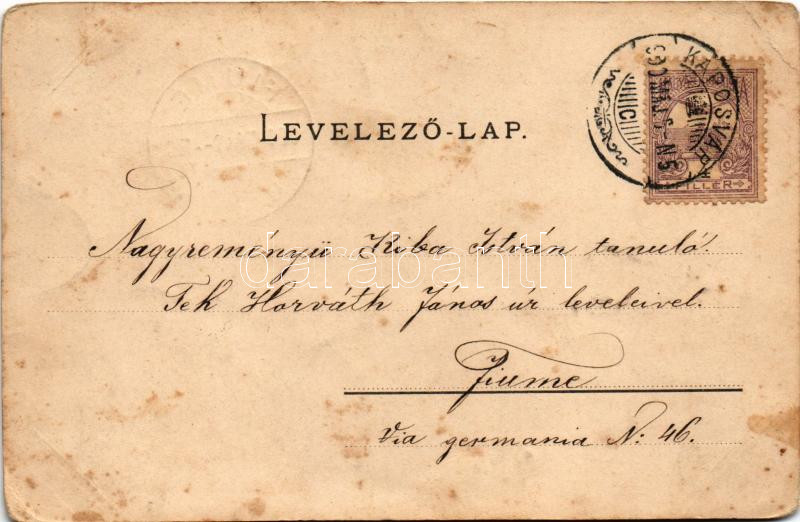 KAPOSVÁR
LEVELEZŐ-LAP.
FILLÉR
Nagyreményü Kiba István tanuló.
Tek Horváth János ur leveleivel.
darabanth
Fiume
Via germania N: 46.